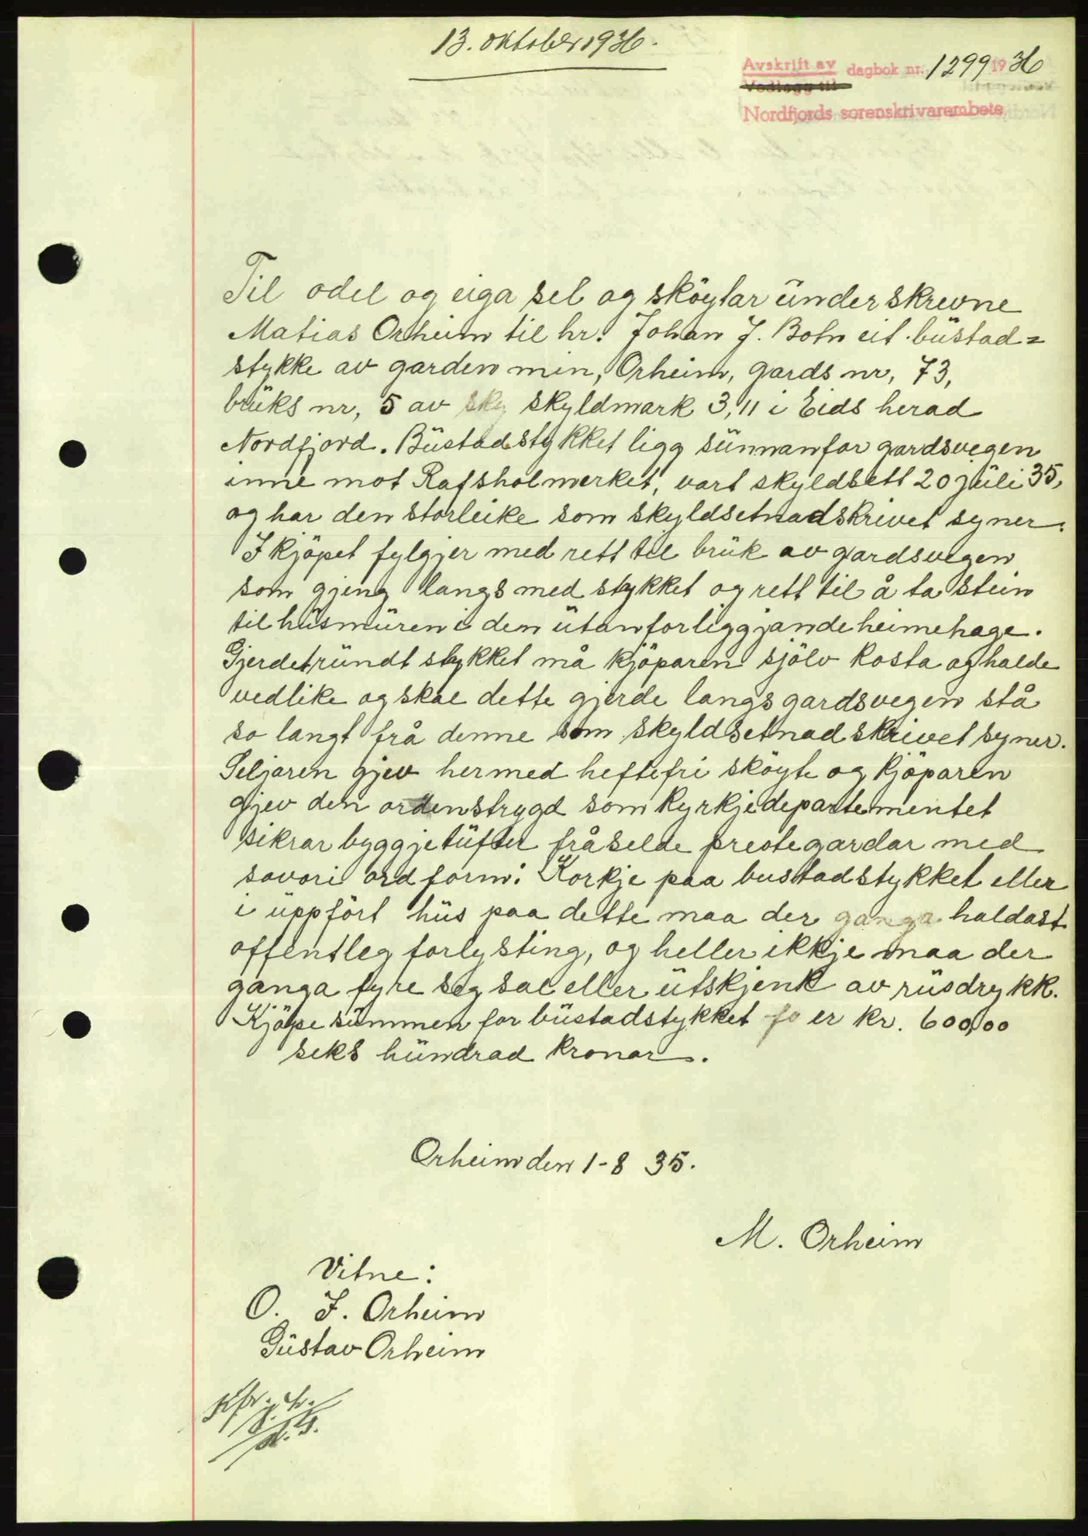 13. oktober 1936.
Avskrift av dagbok nr. 1299 1936
Vedlegg til
Nordfjords sorenskrivarembete
Til odel og eiga sel og sköytar underskrevne
Matias Orheim til hr. Johan J. Botn eit bustad=
stykke av garden min, Orheim, gards nr, 73,
bruks nr, 5 av sky skyldmark 3,11 i Eids herad
Nordfjord. Bustadstykket ligg sunnanfor gardsvegen
inne mot Rafsholmerket, vart skyldsett 20 juli 35,
og har den storleike som skyldsetnadskrivet syner.
I kjöpet fylgjer med rett til bruk av gardsvegen
som gjeng langs med stykket og rett til å ta stein
til husmuren i den utanforliggjande heimehage.
Gjerdet rundt stykket må kjöparen sjölv kosta og halde
vedlike og skal dette gjerde langs gardsvegen stå
so langt frå denne som skyldsetnadskrivet syner.
Seljaren gjev hermed heftefri sköyte og kjöparen
gjev den ordenstrygd som Kyrkjedepartementet
sikrar byggjetufter frå selde prestegardar med
sovori ordform: Korkje paa bustadstykket eller
i uppfört hus paa dette maa der ganga haldast
offentleg forlysting, og heller ikkje maa der
ganga fyre seg sal eller utskjenk av rusdrykk.
Kjöpesummen for bustadstykket fo er kr. 600,00
seks hundrad kronar.
Orheim den 1-8 35.
M. Orheim
Vitne:
O. J. Orheim
Gustav Orheim